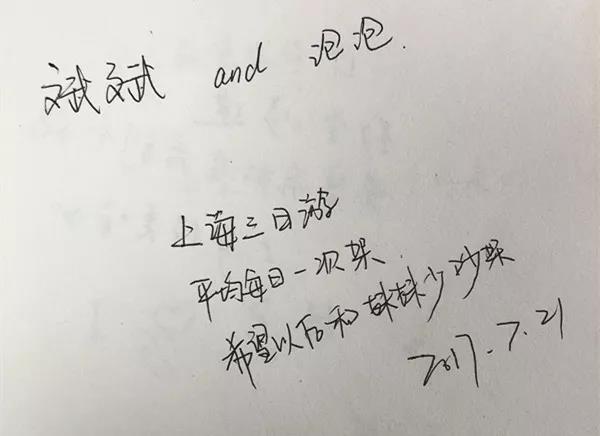 斌斌 and 泡泡.
上海三日游
平均每日一次架.
希望以后和妹妹少吵架
2017.7.21